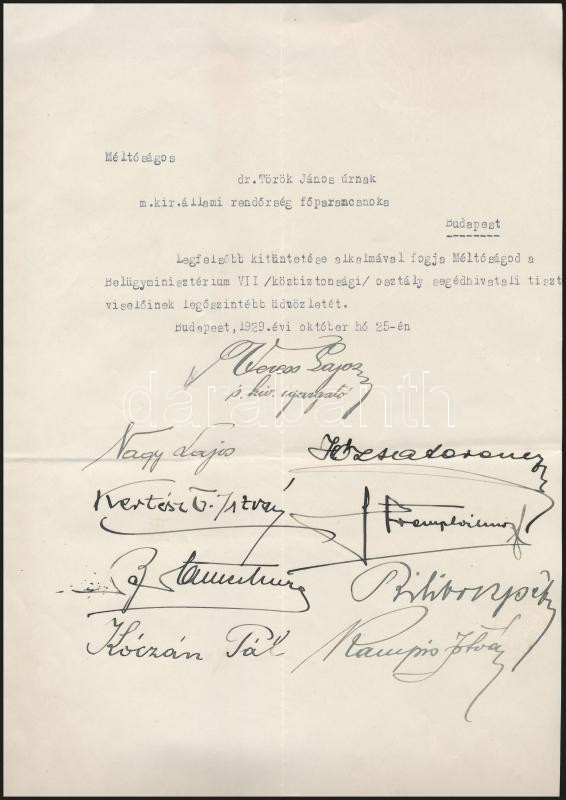 Méltóságos
dr.Török János úrnak
m.kir.állami rendőrség főparancsnoka
Budapest
Legfelsőbb kitüntetése alkalmával fogja Méltóságod a
Belügyminisztérium VII /közbiztonsági/ osztály segédhivatali tiszt
viselőinek legőszintébb üdvözletét.
Budapest,1929.évi október hó 25-én
Veress Lajos
s. hiv. igazgató
darabanth
Nagy Lajos
Kertész G. István
Kóczán Pál
Kampis István